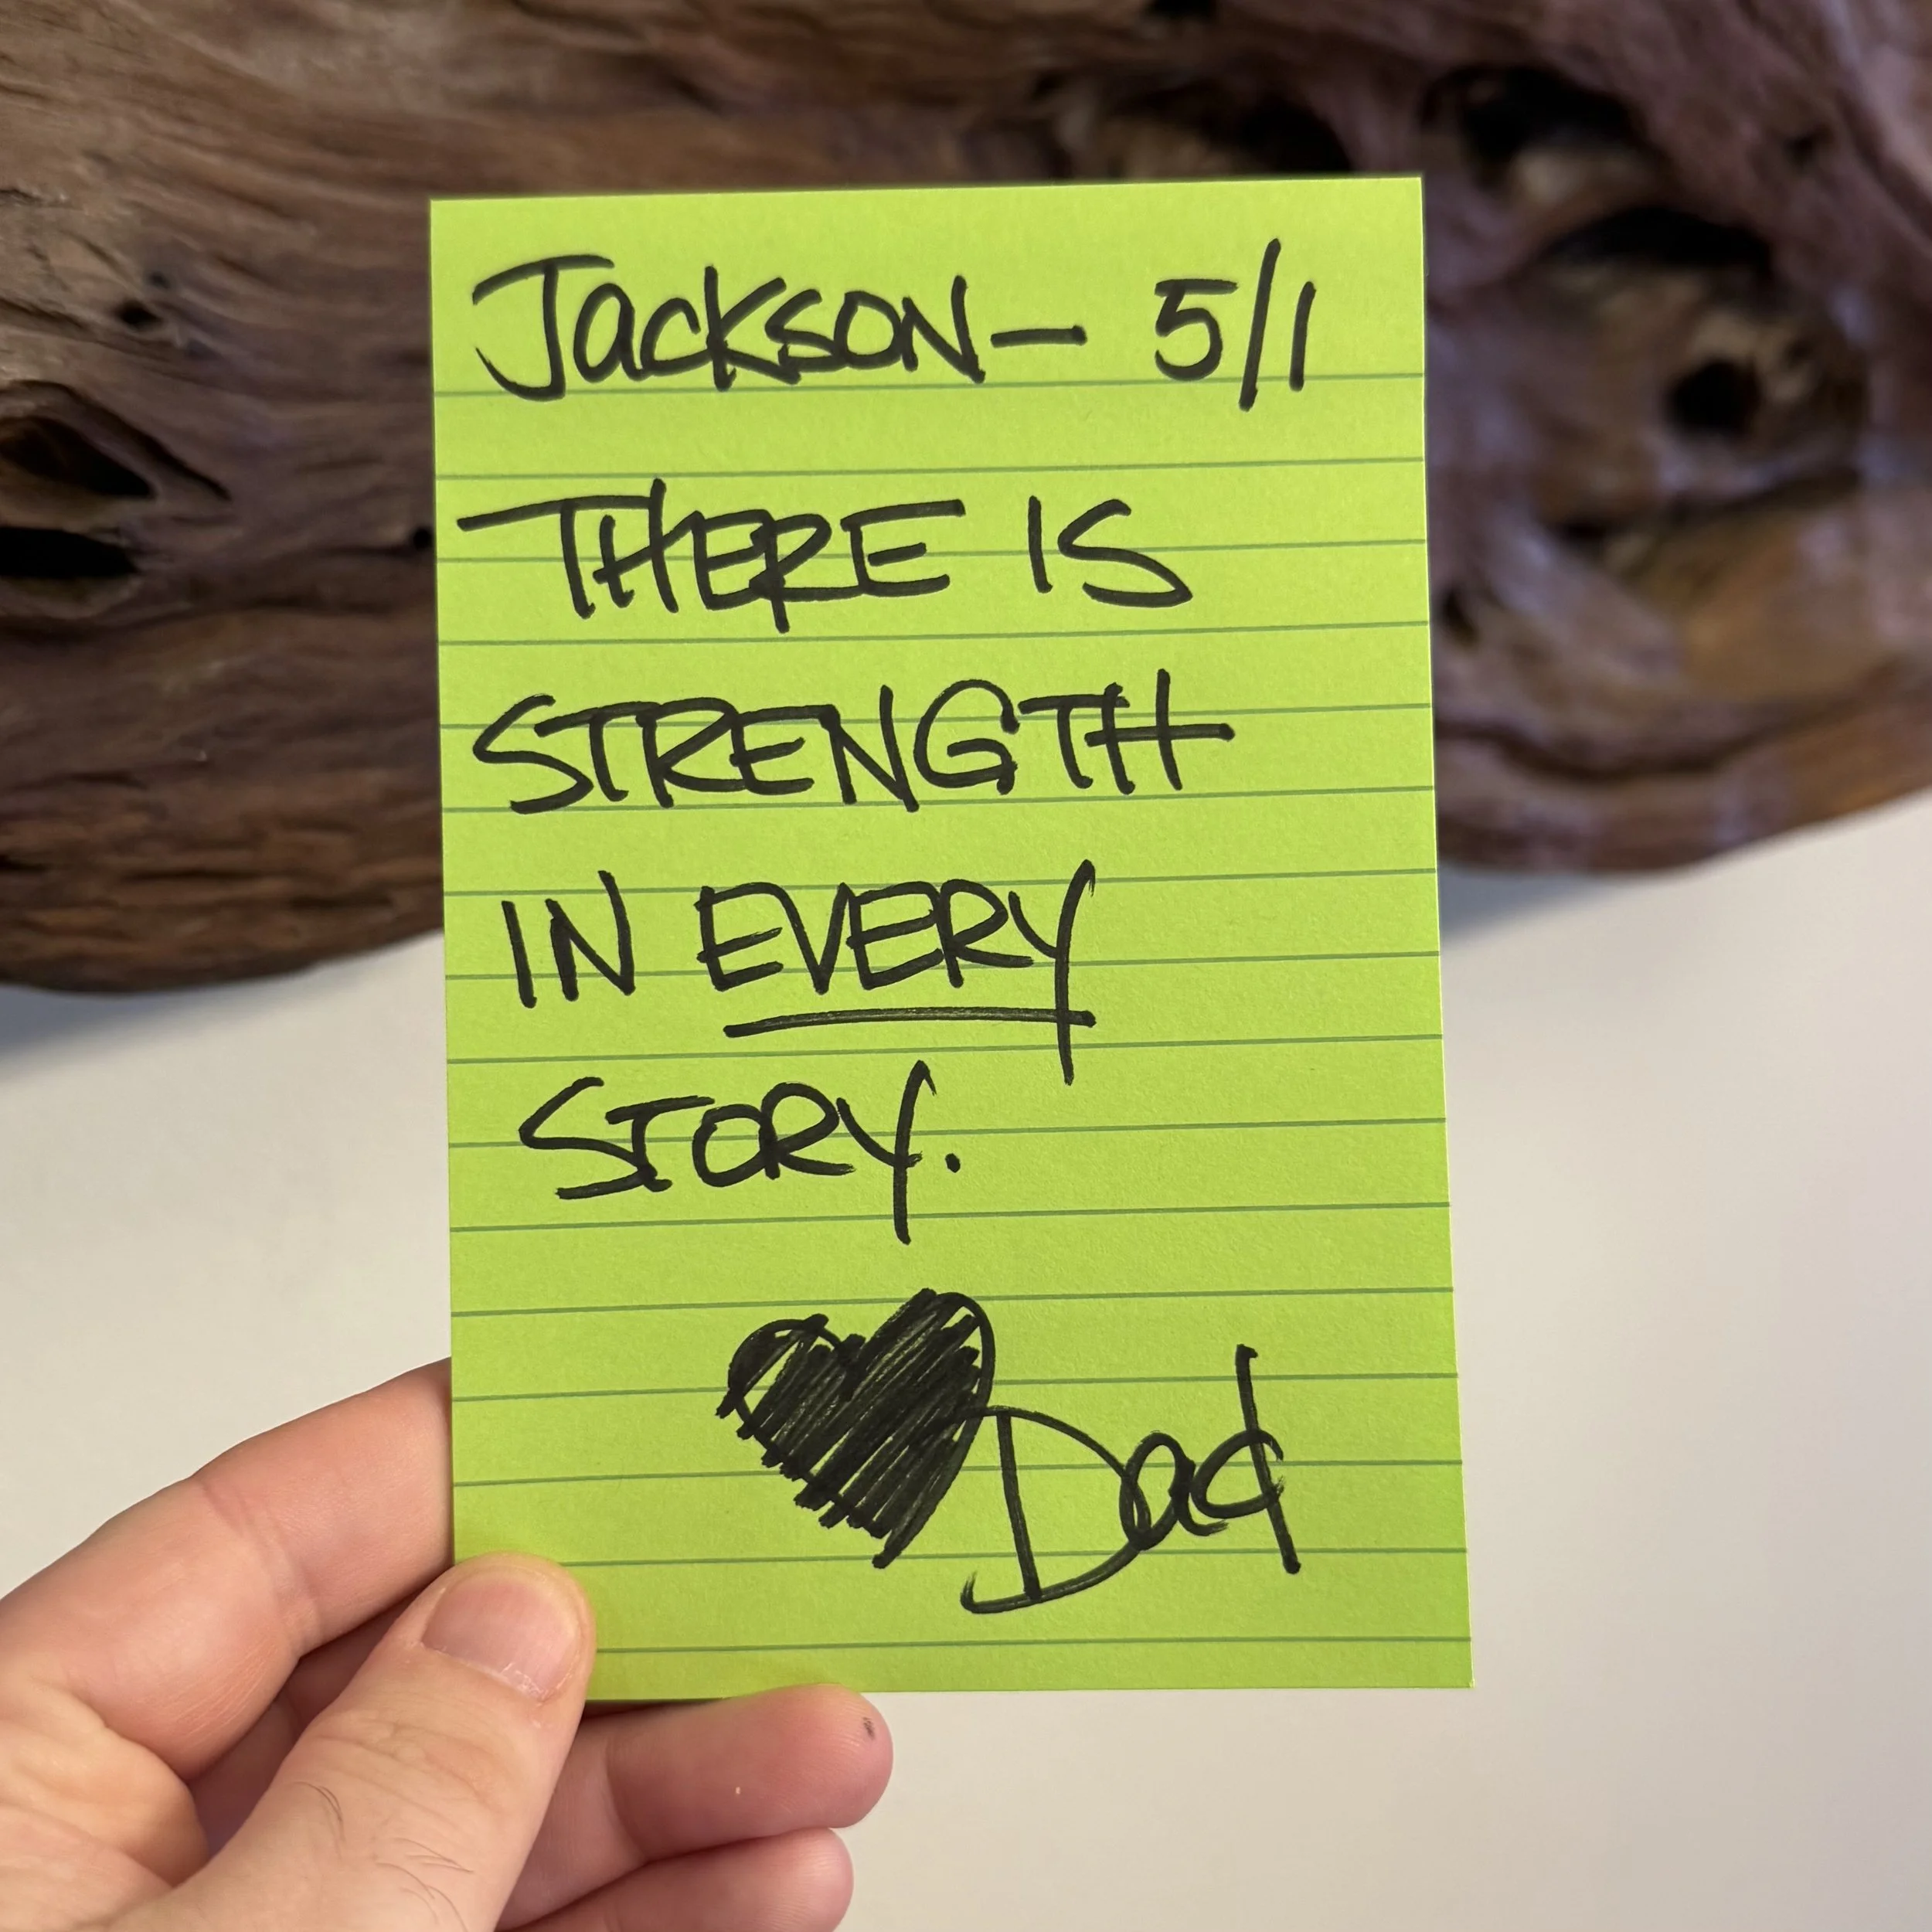 Jackson— 5/1
THERE IS
STRENGTH
IN EVERY
STORY.
Dad